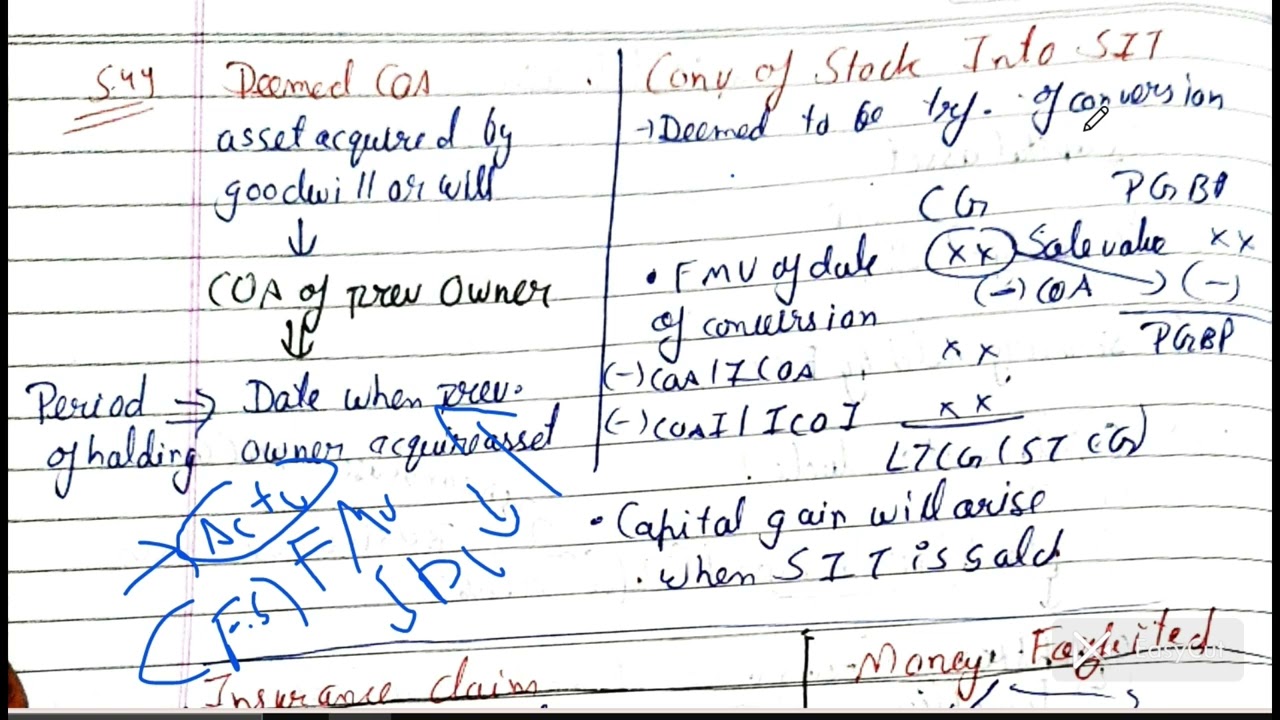 S.49 Deemed COA
asset acquired by
goodwill or will
↓
COA of prev Owner
⇓
Period ⇒ Date when prev.
of holding owner acquire asset
Actu
FMV
Conv of Stock Into SIT
→ Deemed to be trf. of conversion
CG PGBP
• FMV of date xx Sale value xx
of conversion (-) COA → (-)
PGBP
(-) COA / ICOA xx
(-) COAI / ICOI xx
LTCG (STCG)
• Capital gain will arise
. when SIT is sold
Insurance claim
Money Forfeited